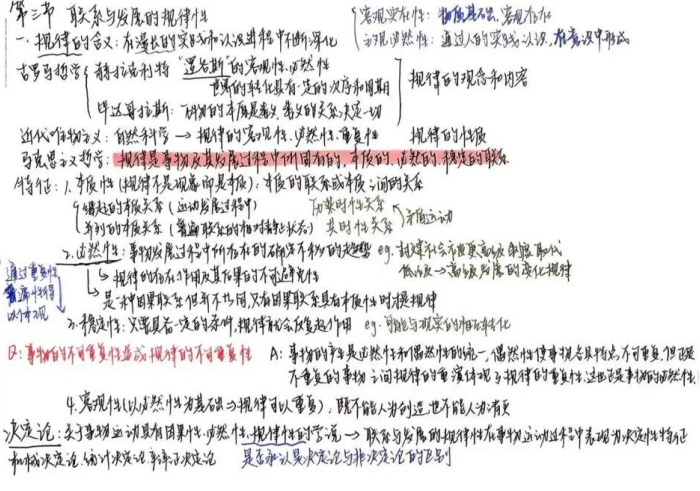 第三节 联系与发展的规律性
客观实在性：物质基础、客观存在
主观必然性：通过人的实践认识，在意识中形成
一、规律的含义：在漫长的实践和认识进程中不断深化
古罗马哲学
赫拉克利特 "逻各斯"的客观性、必然性
世界的转化具有一定的次序和周期
毕达哥拉斯：万物的本原是数，数的关系决定一切
规律的观念和内容
近代唯物主义：自然科学 → 规律的客观性、必然性、重复性 规律的性质
马克思主义哲学：规律是事物及其发展过程中所固有的、本质的、必然的、稳定的联系
特征：1.本质性（规律不是现象而是本质）：本质的联系或本质之间的关系
的本质关系（运动发展过程中） 历时性关系
并列的本质关系（普遍联系的相对静止状态） 共时性关系
矛盾运动
2.必然性：事物发展过程中所存在的确定不移的趋势 eg.封建社会 制度取代
低级→高级发展的变化规律
规律的存在、作用及其后果的不可避免性
是一种因果联系但并不等同，只有因果联系具有本质性时才是规律
通过重复性
3.稳定性：只要具备一定的条件，规律就会反复起作用 eg.可能与现实的相互转化
Q：事物的不可重复性造成规律的不可重复性
A：事物的产生是必然性和偶然性的统一，偶然性使事物各具特点，不可重复，但正是
不重复的事物之间规律的重演体现了规律的重复性，这也正是事物的必然性
4.客观性（以必然性为基础→规律可以重复），既不能人为创造，也不能人为消灭
决定论：关于事物运动具有因果性、必然性、规律性的学说 → 联系与发展的规律性在事物运动过程中表现为决定性特征
机械决定论、统计决定论、辩证决定论 是否承认是决定论与非决定论的区别